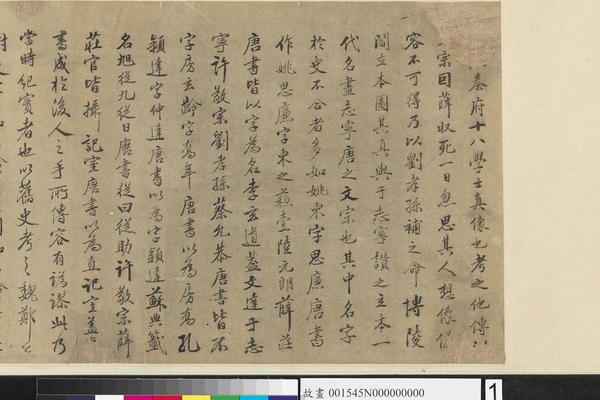 秦府十八學士真像也考之他傳
宗因薛收死一日忽思其人想像儀
容不可得乃以劉孝孫補之命博陵
閻立本圖其真與于志寧讚之立本一
代名畫志寧唐之文宗也其中名字
於史不合者多如姚柬字思廉唐書
作姚思廉字柬之蘇壹陸元朗薛莊
唐書皆以字為名李玄道蓋文達于志
寧許敬宗劉孝孫蔡允恭唐書皆不
字房玄齡字喬年唐書以為房喬孔
穎達字仲達唐書以為字穎達蘇典籤
名旭從九從日唐書從日從助許敬宗薛
莊官皆攝記室唐書以為直記室蓋
書成於後人之手所傳容有譌謬此乃
當時紀實者也以舊史考之魏鄭公
故畫 001545N000000000
1